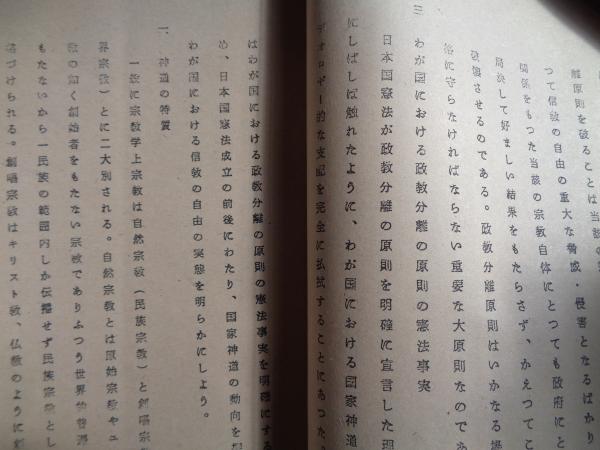 離原則を破ることは当該の宗
つて信教の自由の重大な脅威・侵害となるばかり
関係をもつた当該の宗教自体にとつても政府にと
局決して好ましい結果をもたらさず、かえつてこ
破壊させるのである。政教分離原則はいかなる場
格に守らなければならない重要な大原則なのであ
三 わが国における政教分離の原則の憲法事実
日本国憲法が政教分離の原則を明確に宣言した理
にしばしば触れたように、わが国における国家神道
デオロギー的な支配を完全に払拭することにあつた
はわが国における政教分離の原則の憲法事実を明確にする
め、日本国憲法成立の前後にわたり、国家神道の動向を
わが国における信教の自由の実態を明らかにしよう。
一 神道の特質
一般に宗教学上宗教は自然宗教(民族宗教)と創唱宗
界宗教)とに二大別される。自然宗教とは原始宗教やユ
教の如く創始者をもたない宗教でありふつう世界的普遍
もたないから一民族の範囲内しか伝播せず民族宗教とし
名づけられる。創唱宗教はキリスト教、仏教のように創